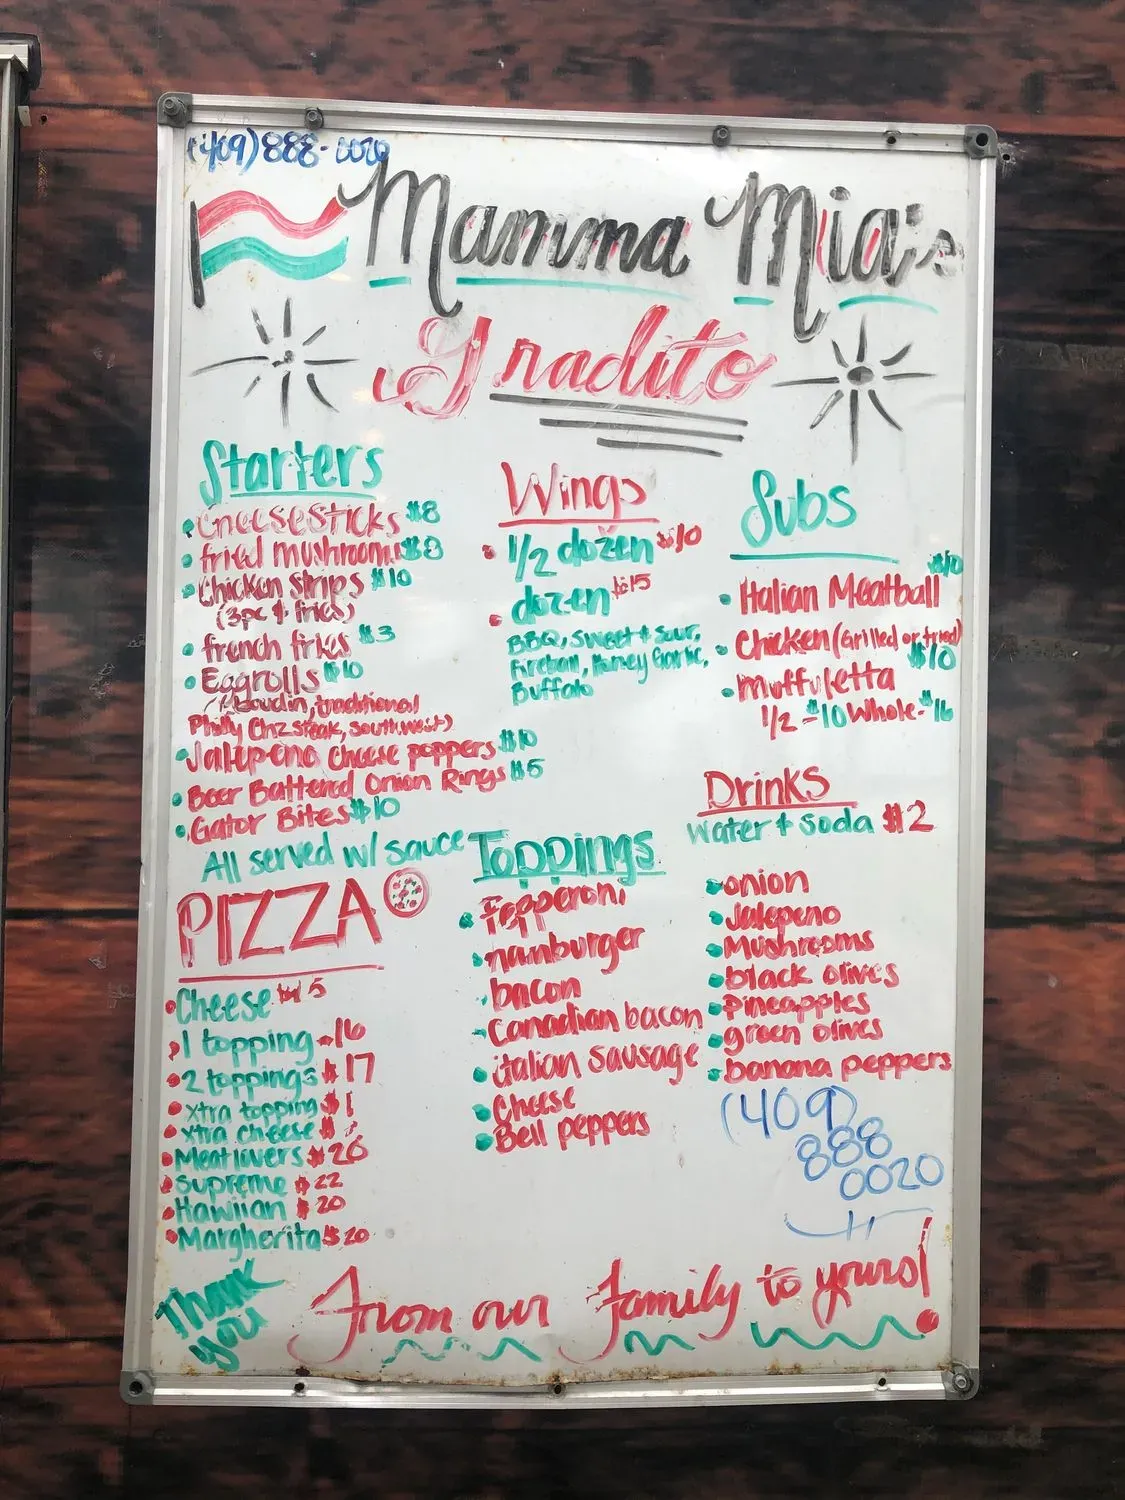 (409)888-0020
Mamma Mia's
Gradito
Starters
Cheese sticks $8
fried mushrooms $8
Chicken strips $10
(3pc & fries)
french fries $3
Eggrolls $10
(Boudin, traditional
Philly Chz steak, southwest)
Jalepeno Cheese poppers $10
Beer Battered Onion Rings $5
Gator Bites $10
All served w/ sauce
Wings
1/2 dozen $10
dozen $15
BBQ, Sweet & Sour,
Fireball, Honey Garlic,
Buffalo
Subs
Italian Meatball $10
Chicken (Grilled or fried) $10
Muffuletta
1/2 - $10 Whole - $16
Drinks
Water & Soda $2
PIZZA
Cheese 15
1 topping 16
2 toppings $17
xtra topping $1
xtra cheese $
Meatlovers $26
Supreme $22
Hawiian $20
Margherita $20
Toppings
Pepperoni
hamburger
bacon
Canadian bacon
italian sausage
Cheese
Bell peppers
onion
Jalepeno
Mushrooms
black olives
Pineapples
green olives
banana peppers
(409)
888
0020
Thank
you
From our family to yours!